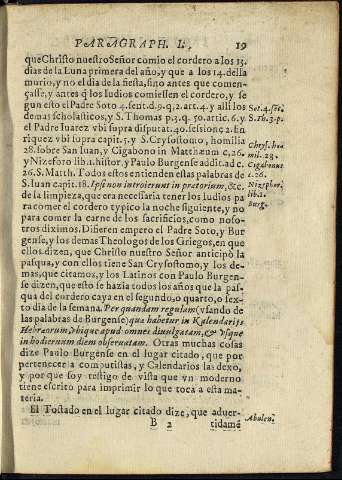 PARAGRAPH. I. 19
que Christo nuestro Señor comio el cordero a los 13.
dias de la Luna primera del año, y que a los 14. della
murio, y no el dia de la fiesta, sino antes que comen-
çasse, y antes q̃ los ludios comiessen el cordero, y se
gun esto el Padre Soto 4. sent. d. 9. q. 2. art. 4. y alli los
demas scholasticos, y S. Thomas p. 3. q. 50. artic. 6. y
el Padre Iuarez vbi supra disputat. 40. session. 2. En
riquez vbi supra capit. 5. y S. Crysostomo, homilia
28. sobre San Iuan, y Cigabono in Matthæum c. 26.
y Nizeforo lib. 1. histor. y Paulo Burgense addit. ad c.
26. S. Matth. Todos estos entienden estas palabras de
S. Iuan capit. 18. Ipsi non introierunt in prætorium, &c.
de la limpieza, que era necessaria tener los ludios pa
ra comer el cordero typico la noche siguiente, y no
para comer la carne de los sacrificios, como noso-
tros diximos. Difieren empero el Padre Soto, y Bur
gense, y los demas Theologos de los Griegos, en que
ellos dizen, que Christo nuestro Señor anticipò la
pasqua, y con ellos tiene San Crysostomo, y los de-
mas, que citamos, y los Latinos con Paulo Burgen-
se dizen, que esto se hazia todos los años que la pas-
qua del cordero caya en el segundo, o quarto, o sex-
to dia de la semana. Per quandam regulam (vsando de
las palabras de Burgense) quæ habetur in Kalendarijs
Hebræorum, vbique apud omnes diuulgatam, & vsque
in hodiernum diem obseruatam. Otras muchas cosas
dize Paulo Burgense en el lugar citado, que por
pertenecer a computistas, y Calendarios las dexo,
y por que soy testigo de vista que vn moderno
tiene escrito para imprimir lo que toca a esta ma-
teria.
El Tostado en el lugar citado dize, que aduer-
B 2 tidamẽ
Sot. 4. sẽt.
S. Th. 3. p.
Chrysost. ho
mil. 23.
Cigabonus
c. 26.
Nizephor.
lib. 1.
Burg.
Abulen.